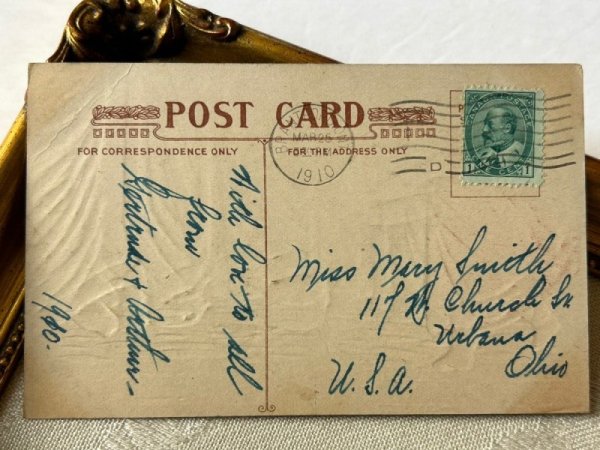 POST CARD
FOR CORRESPONDENCE ONLY
FOR THE ADDRESS ONLY
MAR 26
1910
D
CANADA POSTAGE
1 1
With love to all
from
Gertrude & Arthur –
1910.
Miss Mary Smith
117 W. Church St
Urbana
Ohio
U.S.A.